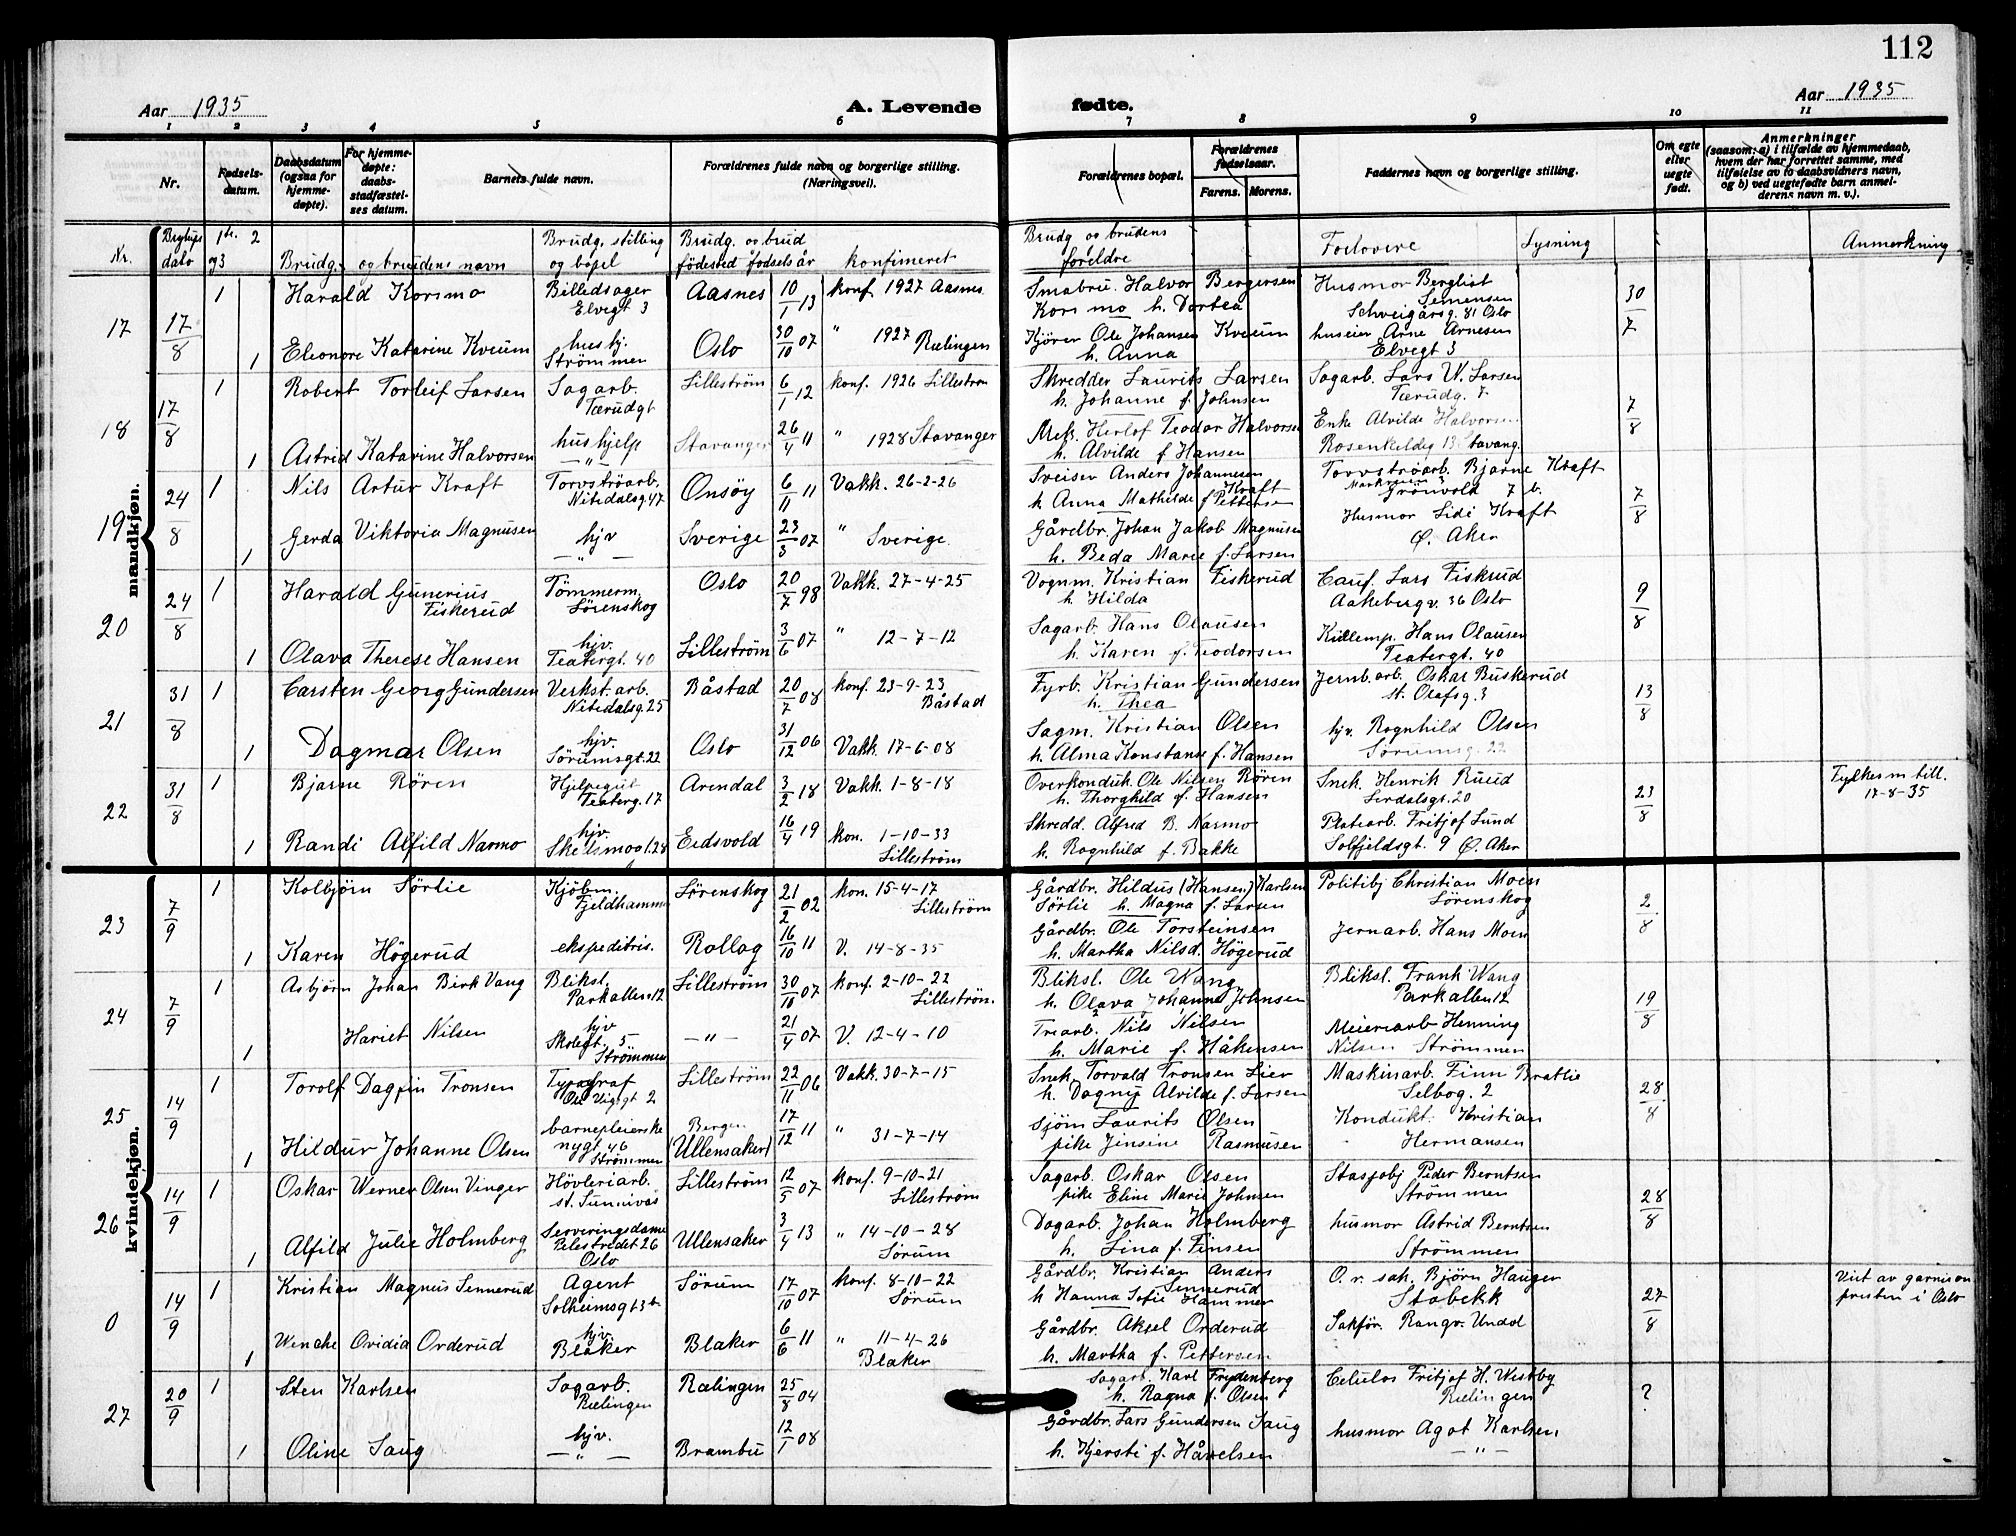 112
Aar 1935
A. Levende fødte.
Aar 1935
1 2 3 4 5 6 7 8 9 10 11
Nr.
Fødsels-
datum.
Daabsdatum
(ogsaa for
hjemme-
døpte).
For hjemme-
døpte:
daabs-
stadfæstel-
ses datum.
Barnets fulde navn.
Forældrenes fulde navn og borgerlige stilling.
(Næringsvei).
Forældrenes bopæl.
Forældrenes
fødselsaar.
Farens. Morens.
Faddernes navn og borgerlige stilling.
Om egte
eller
uegte
født.
Anmerkninger
(saasom: a) i tilfælde av hjemmedaab,
hvem der har forrettet samme, med
tilføielse av to daabsvidners navn,
og b) ved uegtefødte barn anmel-
derens navn m. v.).
Nr.
Bryllups
dato
1ste. 2
og 3
Brudg. og brudens navn
Brudg. stilling
og bopel
Brudg. og brud
fødested fødselsår
konfirmeret
Brudg og brudens
foreldre
Forlovere
Lysning
Anmerkning
mandkjøn.
17
17/8
1
Harald Korsmo
Billedsager
Elvegt 3
Aasnes
10/1 13
konf. 1927 Aasnes
Smabru. Halvor Bergersen
Korsmo h. Dortea
Husmor Bergliot
Semensen
Schveigårsg. 81 Oslo
30/7
1
Eleonore Katarine Kveum
hushj.
Strömmen
Oslo
30/10 07
" 1927 Rælingen
Kjörer Ole Johansen Kveum
h. Anna
huseier Arne Arnesen
Elvegt 3
18
17/8
1
Robert Torleif Larsen
Sagarb.
Tærudgt
Lilleström
6/1 12
konf. 1926 Lilleström
Skredder Laurits Larsen
h. Johanne f. Johnsen
Sagarb. Lars W. Larsen
Tærudg. 7
7/8
1
Astrid Katarine Halvorsen
hushjelp
— " —
Stavanger
26/4 11
" 1928 Stavanger
Mek. Herlof Teodor Halvorsen
h. Alvilde f Hansen
Enke Alvilde Halvorsen
Rosenkeldeg 13 Stavang.
19
24/8
1
Nils Artur Kraft
Torvströarb.
Nitedalsg 47
Onsöy
6/11 11
Vakk. 26-2-26
Sveiser Anders Johannesen
Kraft
h. Anna Mathilde f Petterse
Torvströarb. Bjarne Kraft
Grönvold 7 b.
7/8
1
Gerda Viktoria Magnusen
hjv
— " —
Sverige
23/3 07
" Sverige
Gårdbr. Johan Jakob Magnusen
h. Beda Marie f. Larsen
Husmor Lidi Kraft
Ø. Aker
20
24/8
1
Harald Gunerius
Fiskerud
Tömmerm,
Lörenskog
Oslo
20/7 98
Vakk. 27-4-25
Vognm. Kristian Fiskerud
h. Hilda
Cauf. Lars Fiskrud
Aakebergv. 36 Oslo
9/8
1
Olava Therese Hansen
hjv.
Teatergt. 40
Lilleström
3/6 07
" 12-7-12
Sagarb. Hans Olausen
h. Karen f. Teodorsen
Hans Olausen
Teatergt. 40
21
31/8
1
Carsten Georg Gundersen
Verkst. arb.
Nitedalsg. 25
Båstad
20/7 08
konf. 23-9-23
Båstad
Fyrb. Kristian Gundersen
h. Thea
Jernb.arb. Oskar Buskerud
st. Olafsg. 3
13/8
1
Dagmar Olsen
hjv.
Sörumsgt. 22
Oslo
31/12 06
Vakk. 17-6-08
Sagm. Kristian Olsen
h. Alma Konstanse f. Hansen
hjv. Ragnhild Olsen
Sörumsg. 22
22
31/8
1
Bjarne Rören
Hjelpegut
Teaterg. 17
Arendal
3/2 18
Vakk. 1-8-18
Overkonduk. Ole Nilsen Rören
h. Thorghild f. Hansen
Snek. Henrik Ruud
Lerdalsgt. 20
23/8
Fylkesm till.
17-8-35
1
Randi Alfild Narmo
hjv.
Skelsmogt. 24
Eidsvold
16/4 19
kon. 1-10-33
Lilleström
Skredd. Alfred B. Narmo
h. Ragnhild f. Bakke
Platearb. Fritjof Lund
Solfjeldsgt. 9 Ø. Aker
kvindekjøn.
23
7/9
1
Kolbjörn Sörlie
Kjöbm.
Fjeldhamm
Lörenskog
21/2 02
kon. 15-4-17
Lilleström
Gårdbr. Hildus (Hansen) Karlsen
Sörlie h. Magna f. Larsen
Politibj Christian Moen
Lörenskog
2/8
1
Karen Högerud
ekspeditris.
Rollag
16/10 11
V. 14-8-35
Gårdbr. Ole Torsteinsen
h. Martha Nilsd. Högerud
Jernarb. Hans Moen
24
7/9
1
Asbjörn Johan Birk Vang
Bliksl.
Parkallen 12
Lilleström
30/10 07
konf. 2-10-22
Lilleström.
Bliksl. Ole Wang
h. Olava Johanne Johnsen
Bliksl. Frank Wang
Parkallen 12
19/8
1
Hariet Nilsen
hjv
Skolegt. 5
Strömmen
— " —
21/4 07
V. 12-4-10
Trearb. Nils Nilsen
h. Marie f. Håkensen
Meieriarb Henning
Nilsen Strömmen
25
14/9
1
Torolf Dagfin Tronsen
Typograf
Ole Vigsgt 2
Lilleström
22/11 06
Vakk. 30-7-15
Snek. Torvald Tronsen Lier
h. Dagny Alvilde f. Larsen
Maskinarb. Finn Bratlie
Selbog. 2
28/8
1
Hildur Johanne Olsen
barnepleierske
nygt. 46
Strömmen
Bergen
(Ullensaker)
17/12 11
" 31-7-14
Sjöm Laurits Olsen
pike Jensine Rasmusen
Kondukt. Kristian
Hermansen
26
14/9
1
Oskar Werner Olsen Vinger
Hövleriarb.
st. Sunnivas
Lilleström
12/5 07
konf. 9-10-21
Lilleström
Sagarb. Oskar Olsen
pike Eline Marie Johnsen
Stasjobj Peder Berntsen
Strömmen
28/8
1
Alfild Julie Holmberg
Serveringsdame
Pilestredet 26
Oslo
Ullensaker
3/4 13
" 14-10-28
Sörum
Dagarb. Johan Holmberg
h. Lina f. Finsen
husmor Astrid Berntsen
Strömmen
0
14/9
1
Kristian Magnus Sennerud
Agent
Solheimsgt 3 b
Sörum
17/10 07
konf. 8-10-22
Sörum
Gårdbr. Kristian Anders
Sennerud
h Hanna Sofie Hammer
O.r. sak. Bjørn Hauger
Stabekk
27/8
Viet av garnison
presten i Oslo
1
Wenche Ovidia Orderud
hjv.
Blaker
Blaker
6/6 11
" 11-4-26
Blaker
Gårdbr. Aksel Orderud
h. Martha f. Pettersen
Sakför. Rangv. Undal
27
20/9
1
Sten Karlsen
Sagarb.
Rælingen
Rælingen
25/8 04
Sagarb. Karl Frydenberg
h. Ragna f. Olsen
Celulos Fritjof H. Westby
Rælingen
?
1
Oline Saug
hjv.
— " —
Brambu
12/1 08
Gårdbr. Lars Gundersen Saug
h. Kjersti f. Håvelsen
husmor Agot Karlsen
— " —